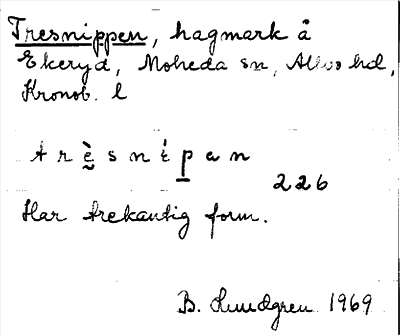 Tresnippen, hagmark å
Ekeryd, Moheda sn, Allbo hd,
Kronob. l
trè̬sní̀p̠an
226
Har trekantig form.
B. Lundgren 1969